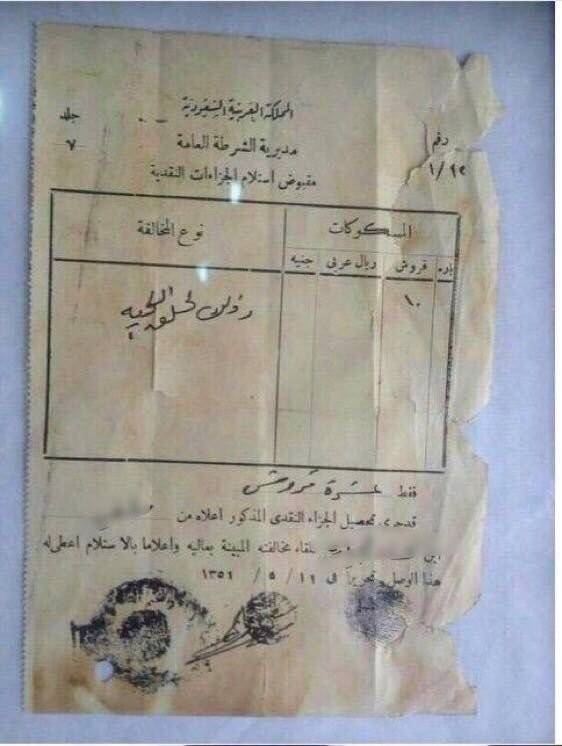 المملكة العربية السعودية
مديرية الشرطة العامة
مقبوض استلام الجزاءات النقدية
رقم
١/٩٢
جلد
٧
المسكوكات
نوع المخالفة
باره
قروش
ريال عربي
جنيه
١٠
لحلق اللحيه
فقط عشرة قروش
قد جرى تحصيل الجزاء النقدي المذكور اعلاه من
لقاء مخالفته المبينة بعاليه واعلاما بالاستلام اعطى له
هذا الوصل وتحريراً في ١٦ / ٥ / ١٣٥٦